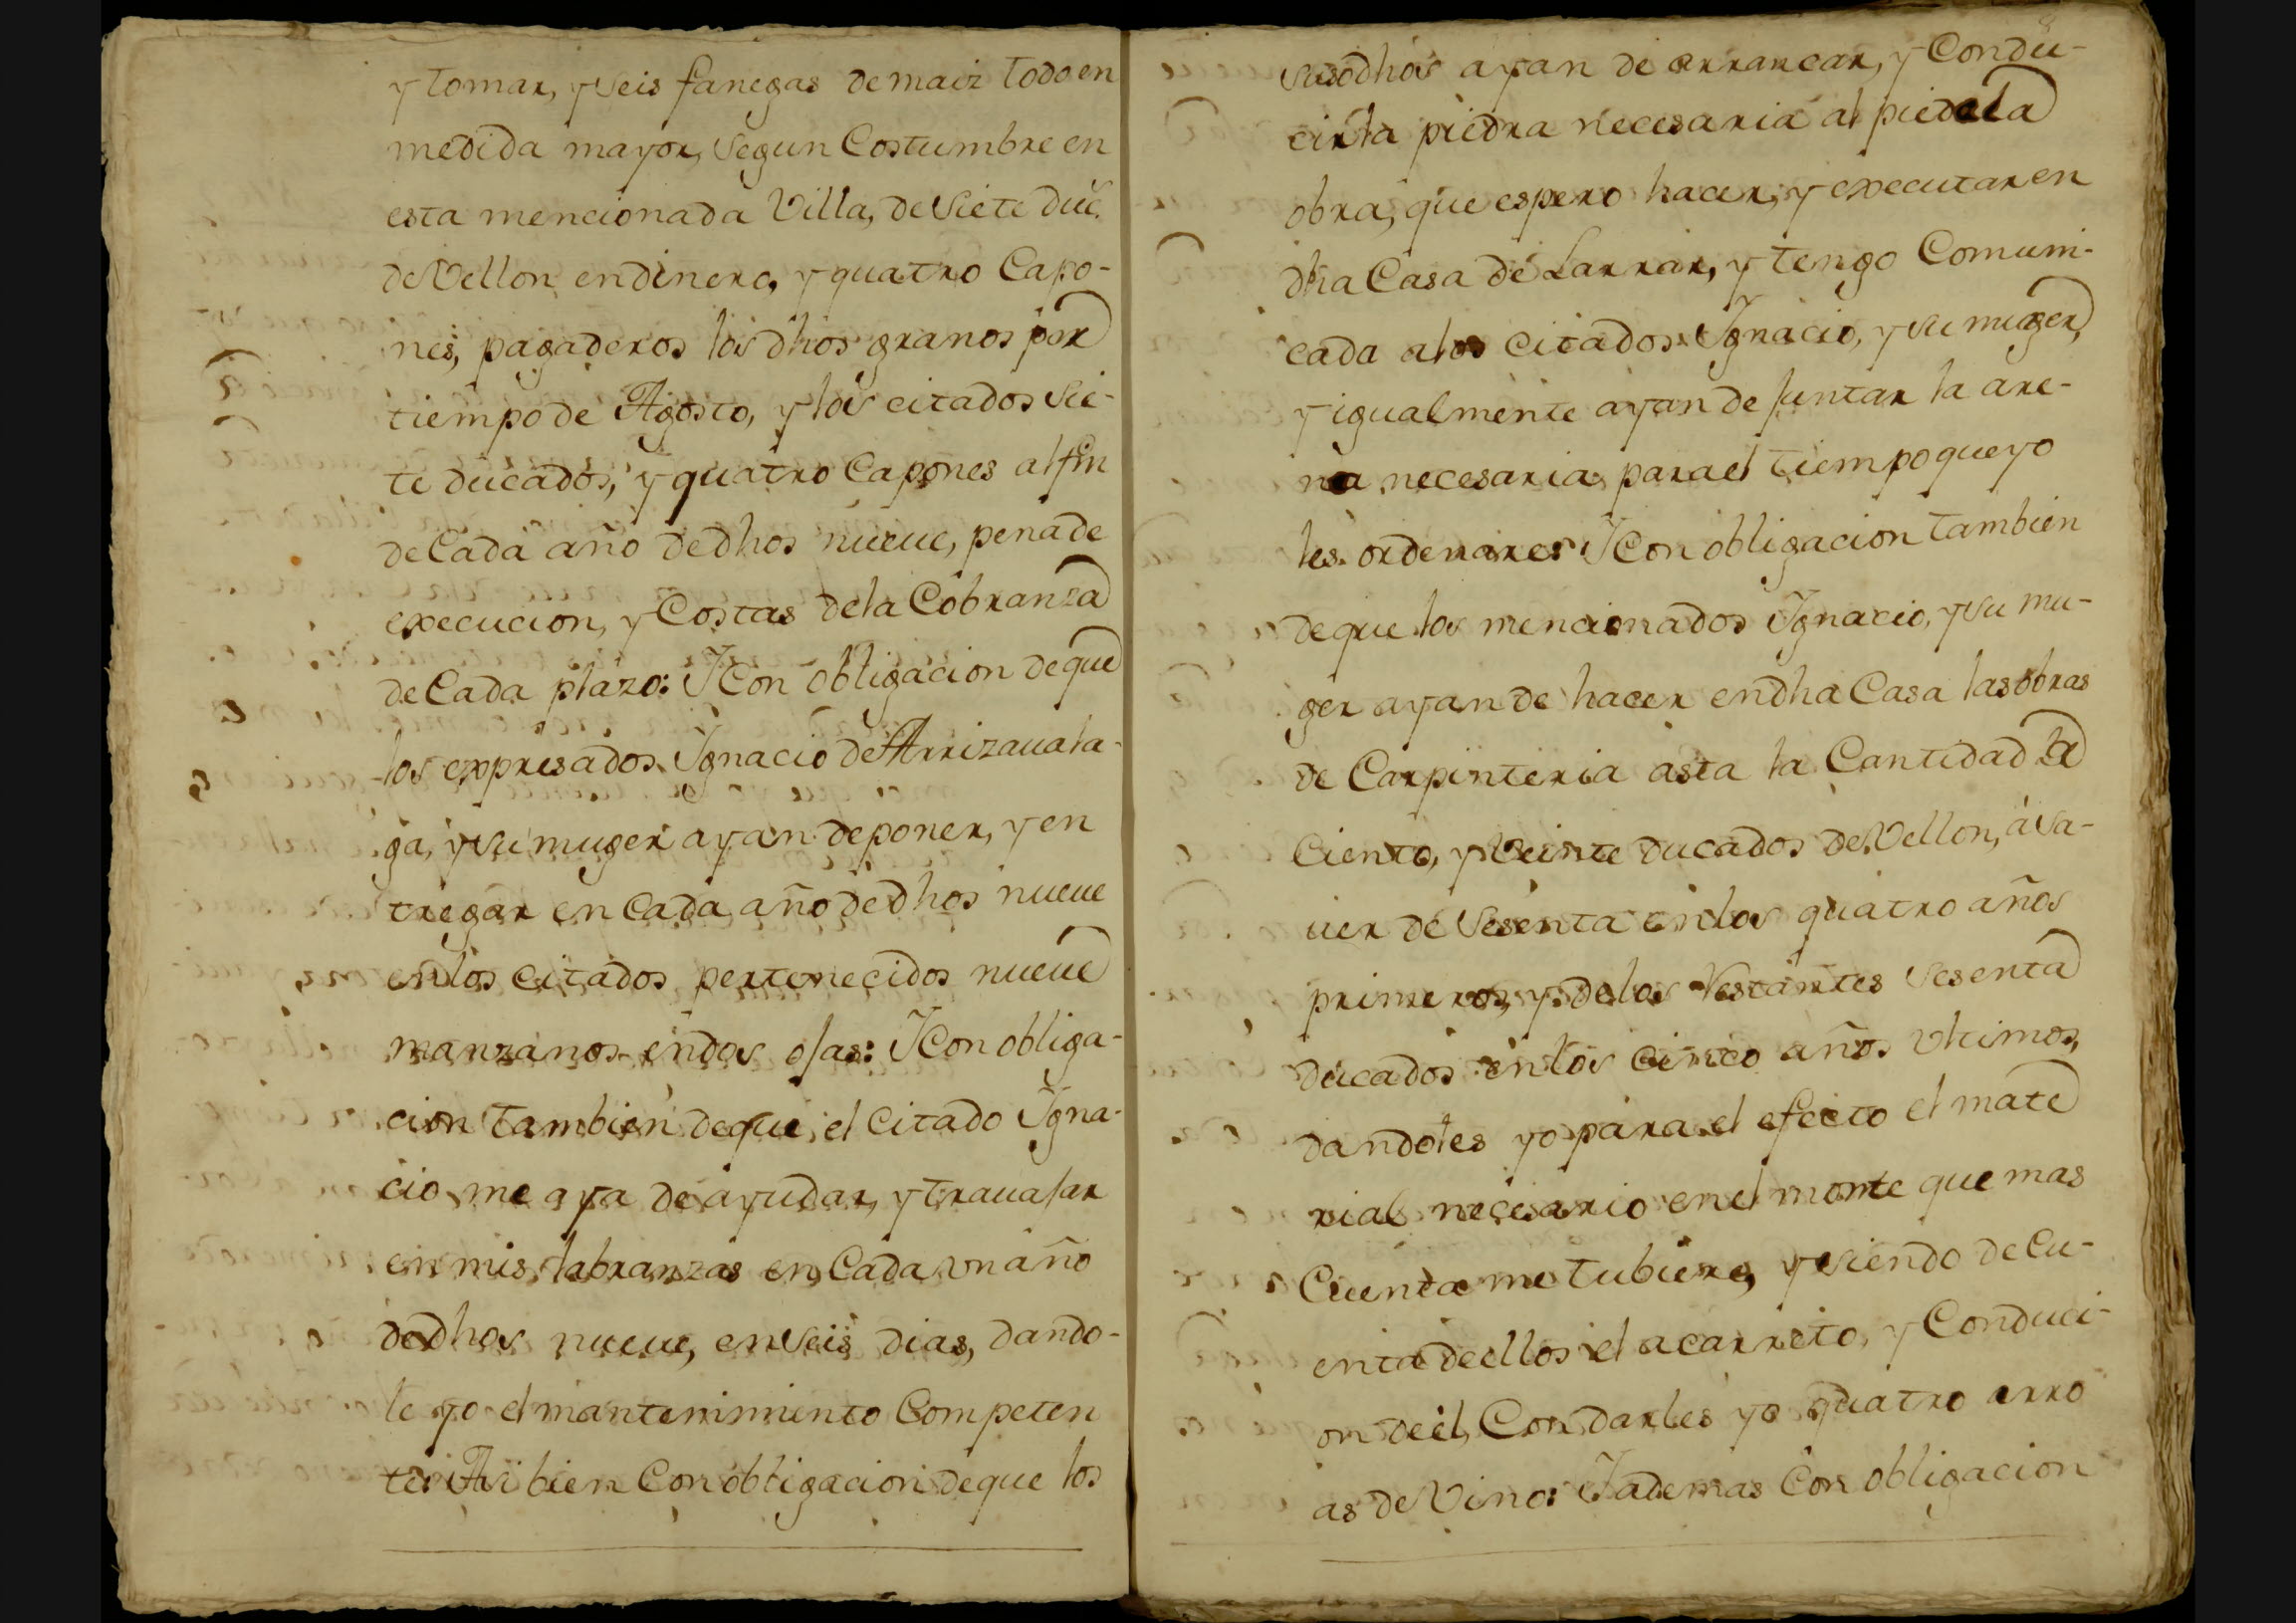 y tomar, y seis fanegas de maiz todo en
medida mayor, segun Costumbre en
esta mencionada Villa, de siete duc.
de Vellon en dinero, y quatro Capo-
nes, pagaderos los dhos granos por
tiempo de Agosto, y los citados sie-
te ducados, y quatro Capones al fin
de Cada año de dhos nueue, pena de
execucion, y Costas de la Cobranza
de Cada plazo: Y Con obligacion de que
los expresados Ygnacio de Arrizauala-
ga, y su muger ayan de poner, y en
tregar en Cada año de dhos nueue
en los citados pertenecidos nueue
manzanos en dos ojas: Y Con obliga-
cion tambien de que el Citado Ygna-
cio me aya de ayudar, y trauajar
en mis labranzas en Cada vn año
de dhos nueue, en seis dias, dando-
le yo el mantenimiento Competen
te: Asi bien Con obligacion de que los
susodhos ayan de arrancar, y Condu-
cir la piedra necesaria al pie de la
obra, que espero hacer, y executar en
dha Casa de Larrar, y tengo Comuni-
cada a los citados Ygnacio, y su muger,
y igualmente ayan de juntar la are-
na necesaria para el tiempo que yo
les ordenare: Y Con obligacion tambien
de que los mencionados Ygnacio, y su mu-
ger ayan de hacer en dha Casa las obras
de Carpinteria asta la Cantidad de
Ciento, y veinte ducados de Vellon, á sa-
uer de sesenta en los quatro años
primeros, y de los restantes sesenta
ducados en los cinco años vltimos,
dandoles yo para el efecto el mate
rial necesario en el monte que mas
Cuenta me tubiere, y siendo de Cu-
enta de ellos el acarreto, y Conduci-
on de el, Con darles yo quatro arro
as de Vino: Y ademas Con obligacion